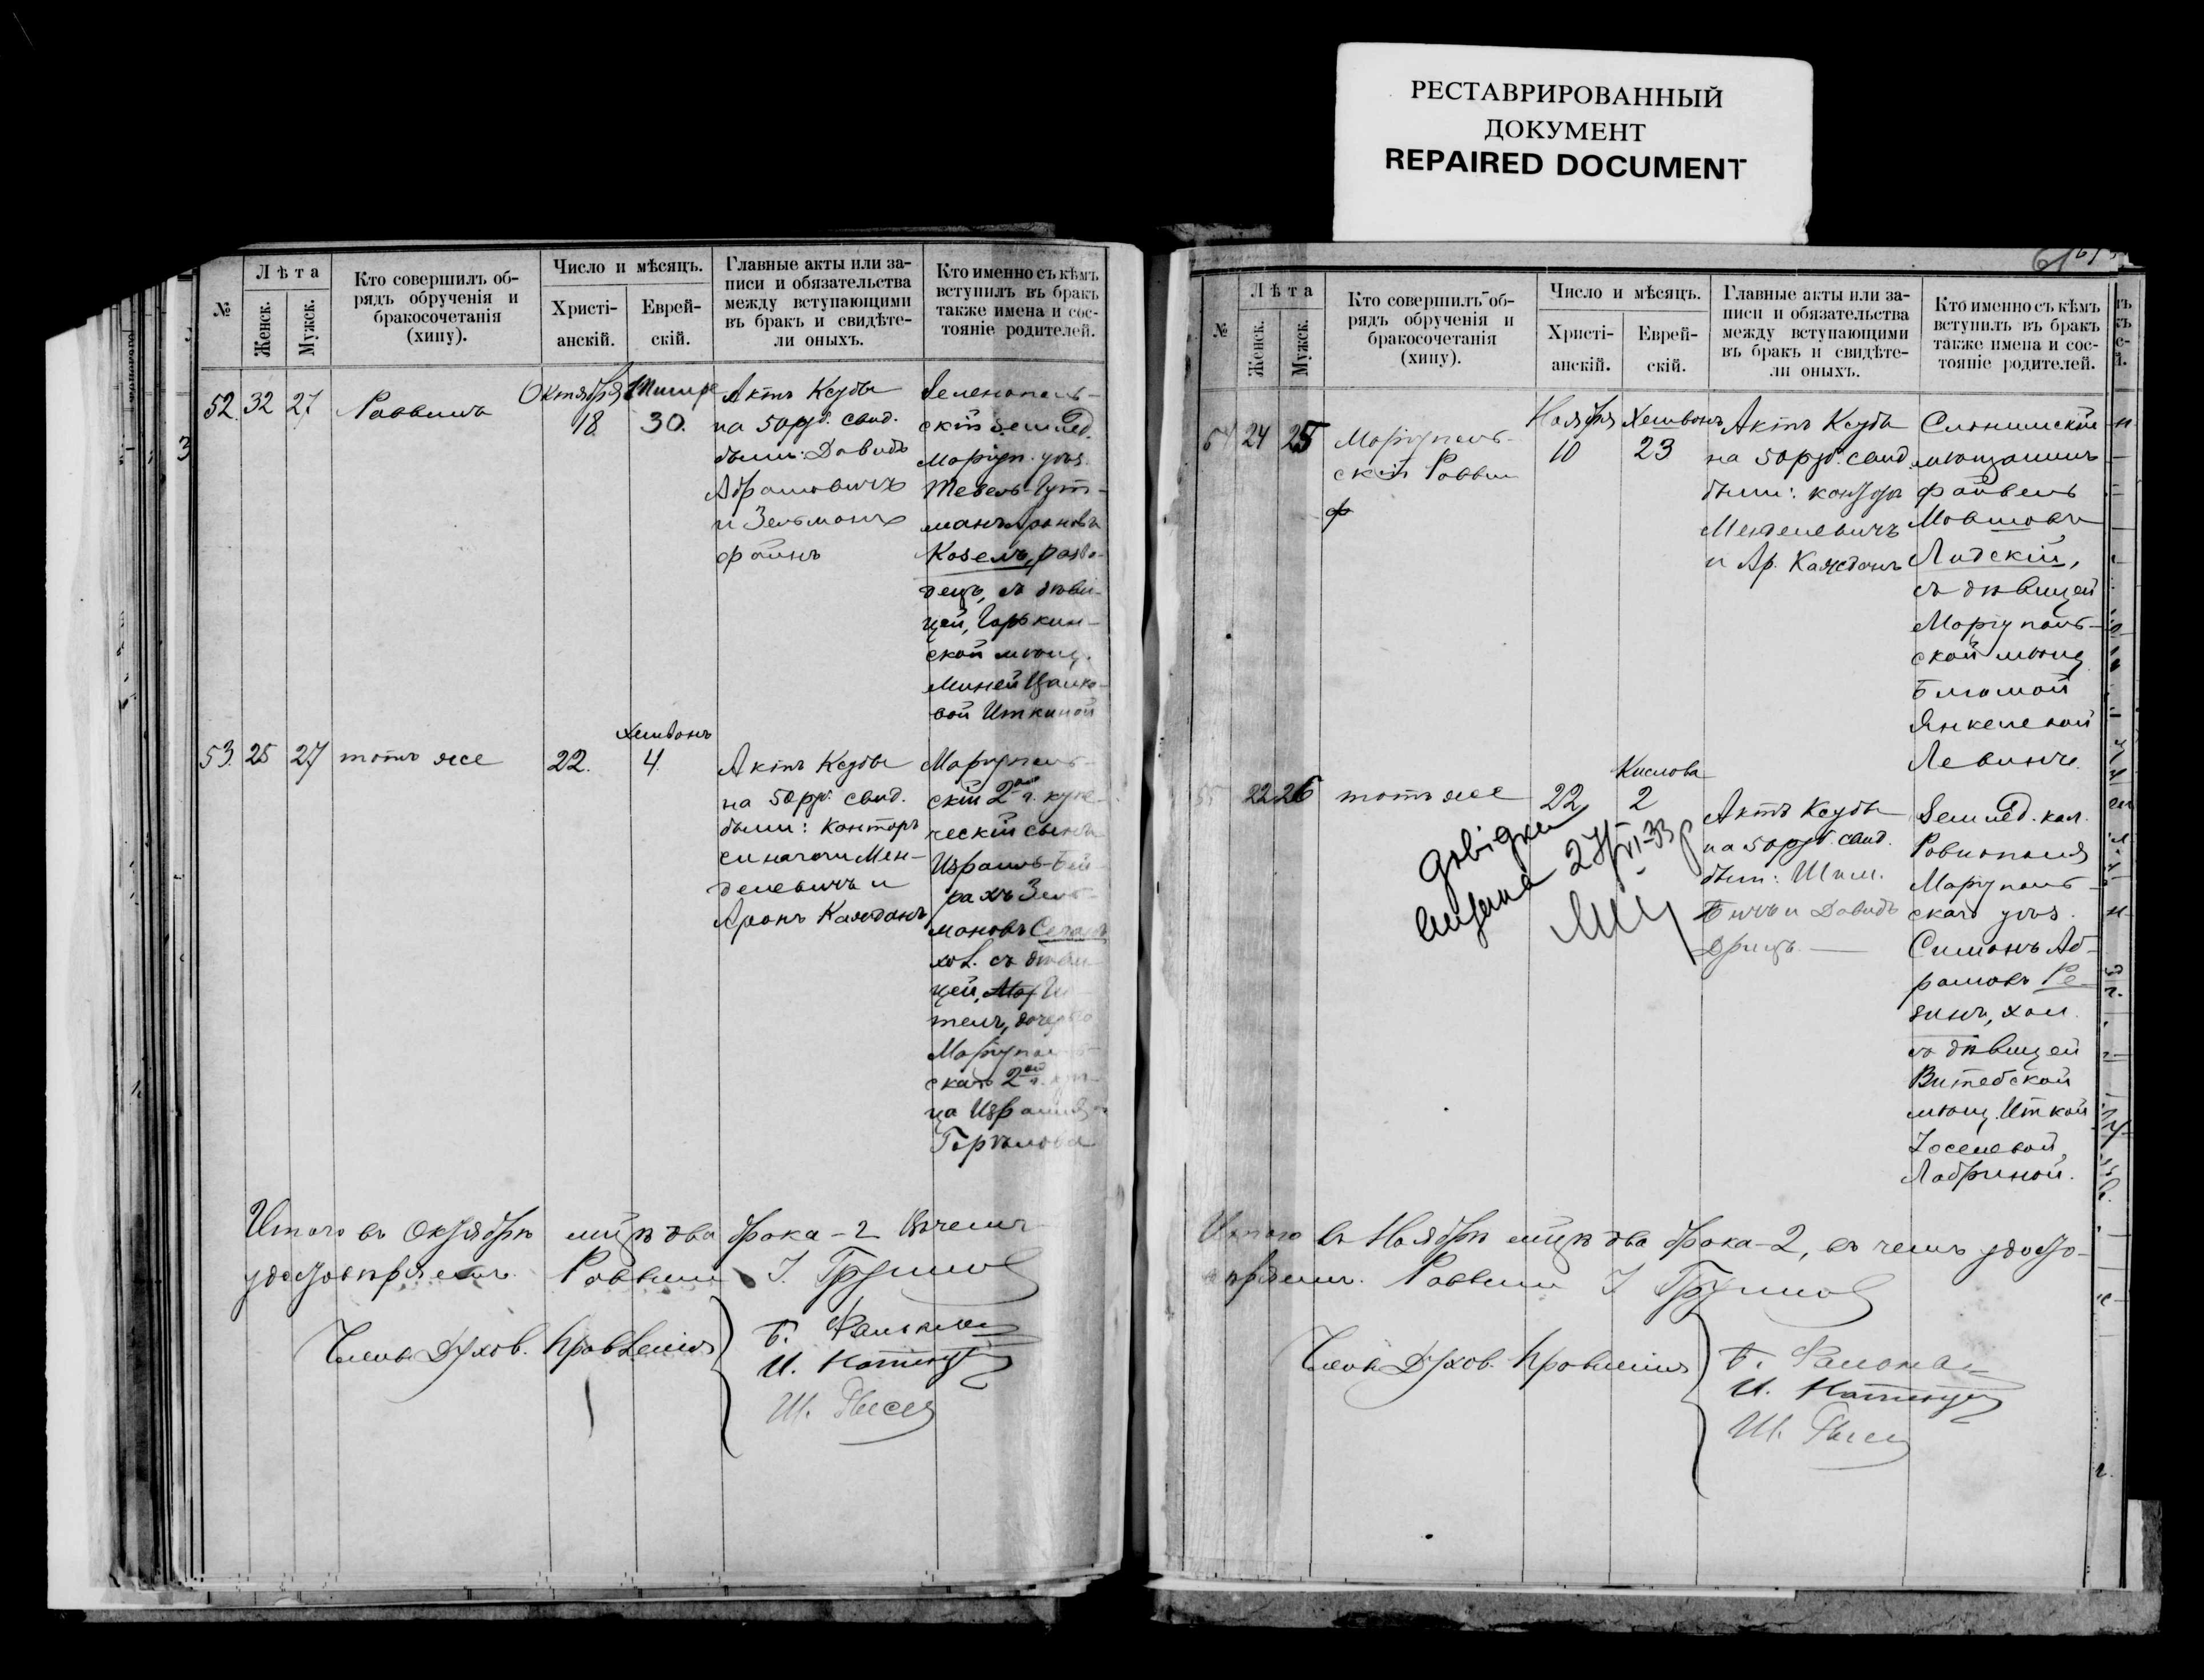 РЕСТАВРИРОВАННЫЙ
ДОКУМЕНТ
REPAIRED DOCUMENT
№
Лѣта
Женск.
Мужск.
Кто совершилъ об-
рядъ обрученія и
бракосочетанія
(хипу).
Число и мѣсяцъ.
Христі-
анскій.
Еврей-
скій.
Главные акты или за-
писи и обязательства
между вступающими
въ бракъ и свидѣте-
ли оныхъ.
Кто именно съ кѣмъ
вступилъ въ бракъ
также имена и сос-
тояніе родителей.
52. 32 27
Раввинъ
Октября
18.
Тишре
30.
Актъ Ксубы
на 50 руб. свид.
были: Давидъ
Абрамовичъ
и Зельманъ
Файнъ
Зеленополь-
скій землед.
Маріуп. уѣз.
Тевель-Гут-
манъ Ароновъ
Козель, разво-
децъ, съ дѣви-
цей,
ской мѣщ.
Миней
вой Иткиной
53. 25 27
тотъ же
22.
Хешванъ
4.
Актъ Ксубы
на 50 руб. свид.
были: Канторъ
синагоги Мен-
делевичъ и
Аронъ Каждонъ
Маріуполь-
скій 2ой г. купе-
ческій сынъ
Израиль-Бей-
рахъ Зель-
мановъ
хол. съ дѣви-
цей,
дочерью
Маріуполь-
скаго 2ой г. куп-
ца Израиля
Итого въ Октябрѣ м-цѣ два брака - 2 въ чемъ
удостовѣряемъ. Раввинъ І.
Члены Духов. Правленія
Б.
И.
Ш.
61
№
Лѣта
Женск.
Мужск.
Кто совершилъ об-
рядъ обрученія и
бракосочетанія
(хипу).
Число и мѣсяцъ.
Христі-
анскій.
Еврей-
скій.
Главные акты или за-
писи и обязательства
между вступающими
въ бракъ и свидѣте-
ли оныхъ.
Кто именно съ кѣмъ
вступилъ въ бракъ
также имена и сос-
тояніе родителей.
54 24 25
Маріуполь-
скій Раввин
ф
Ноября
10
Хешванъ
23
Актъ Ксубы
на 50 руб. свид.
были: канторъ
Менделевичъ
и Ар. Каждонъ
Слонимскій
мѣщанинъ
Файвель
Мовшовъ
Лидскій,
съ дѣвицей
Маріуполь-
ской мѣщ.
Блюмой
Янкелевой
Левинъ.
55 22 26
тотъ же
22
Кислова
2
Актъ Ксубы
на 50 руб. свид.
были: Шлем.
и Давидъ
Землед. кол.
Ровнополя
Маріуполь-
скаго уѣз.
Симонъ Аб-
рамовъ Ре-
зинъ, хол.
съ дѣвицей
Витебской
мѣщ. Иткой
Іоселевой
Лабриной.
довідка
видана 27/VI-33 р
Итого въ Ноябрѣ м-цѣ два брака - 2, въ чемъ удосто-
вѣряемъ. Раввинъ І
Члены Духов. Правленія
Б.
И.
Ш.